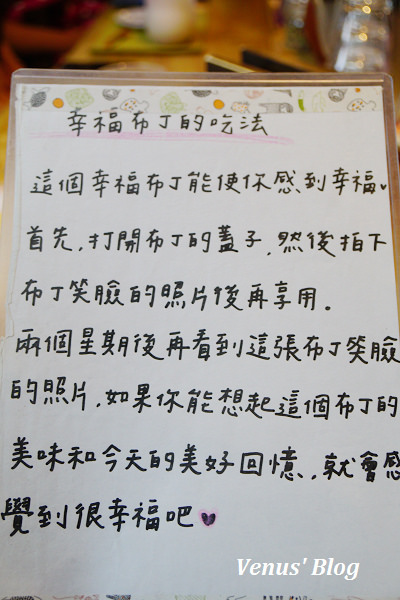 幸福布丁的吃法
這個幸福布丁能使你感到幸福♥
首先,打開布丁的蓋子,然後拍下
布丁笑臉的照片後再享用。
兩個星期後再看到這張布丁笑臉
的照片,如果你能想起這個布丁的
美味和今天的美好回憶,就會感
覺到很幸福吧♥
Venus' Blog